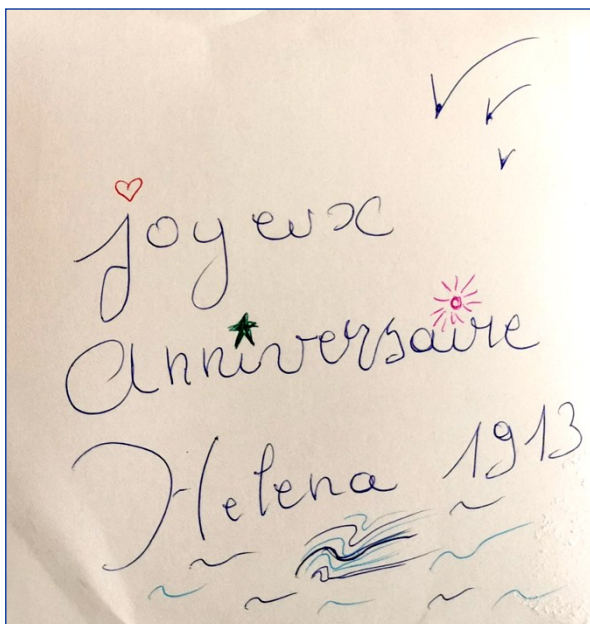 joyeux
anniversaire
Helena 1913